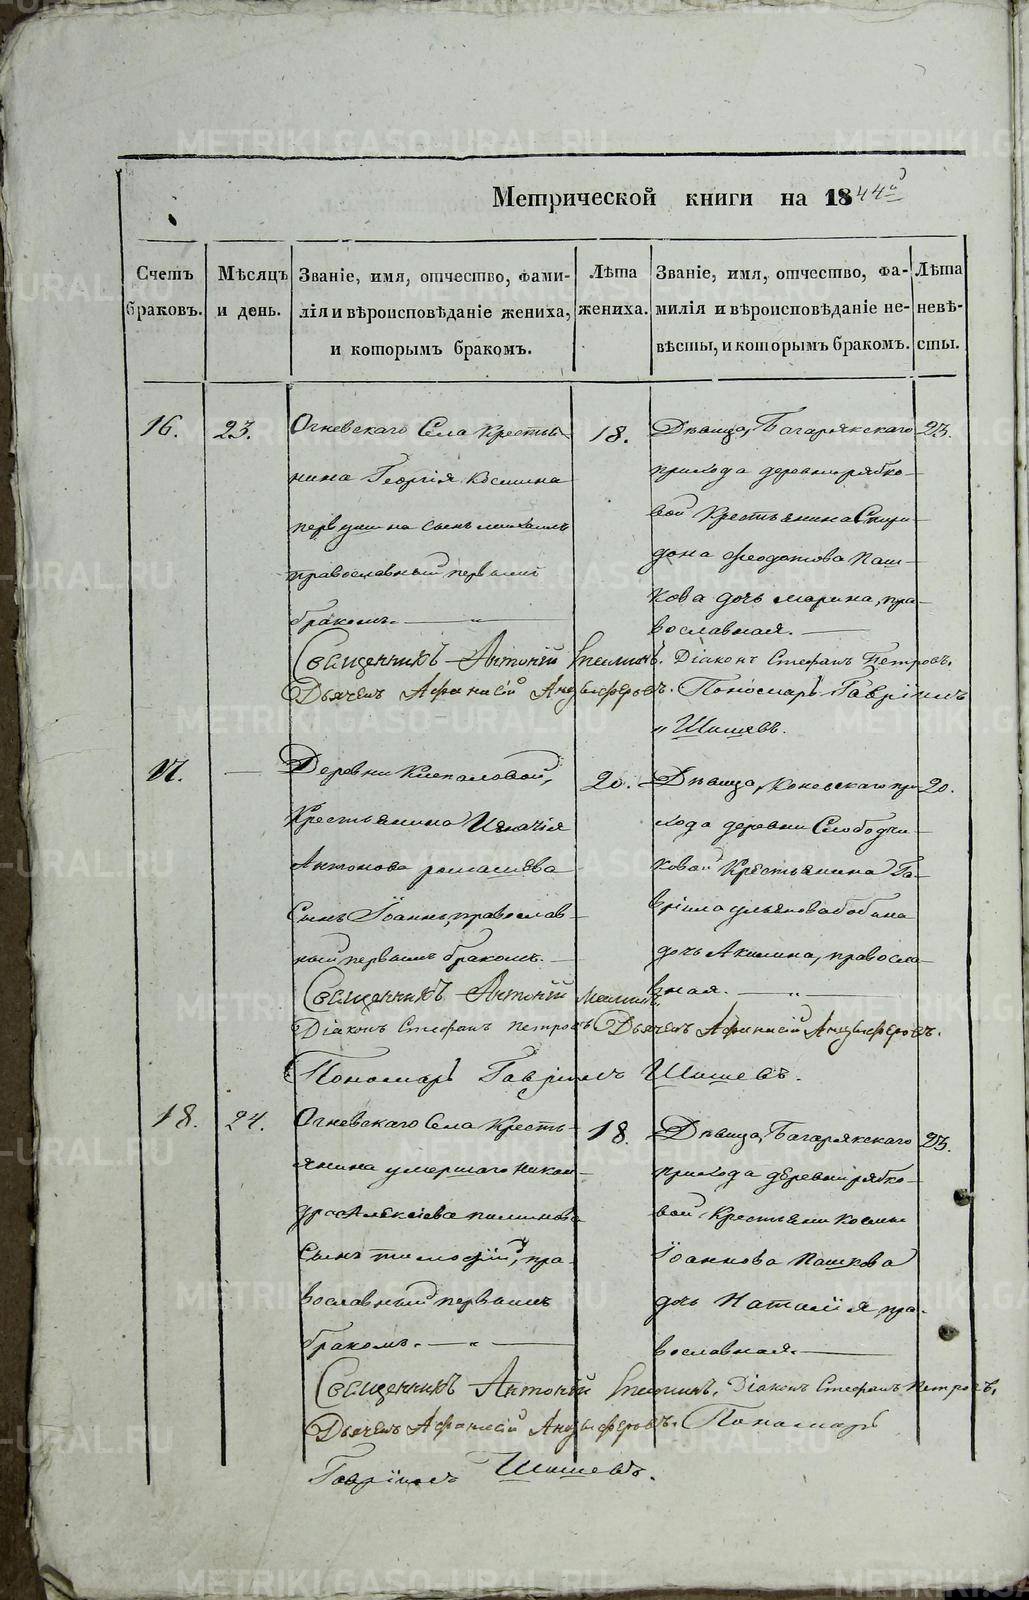 Метрической книги на 1844й
Счетъ браковъ.
Мѣсяцъ и день.
Званіе, имя, отчество, фами-
лія и вѣроисповѣданіе жениха,
и которымъ бракомъ.
Лѣта жениха.
Званіе, имя, отчество, фа-
милія и вѣроисповѣданіе не-
вѣсты, и которымъ бракомъ.
Лѣта невѣ-
сты.
16.
23.
Огневскаго Села Крестья-
нина Георгія Космина
сынъ Михаилъ
православный первымъ
бракомъ. — „ —
18.
Дѣвица, Багарякскаго
прихода деревни рябко-
вой Крестьянина Спири-
дона Ѳеодотова Паш-
кова дочь Марина, пра-
вославная. —
23.
Священникъ Антоній
Діаконъ Стефанъ Петровъ.
Дьячекъ Афанасій Анцыферовъ. Пономарь Гавріилъ
„ Шишевъ.
17.
—
Деревни Клепаловой,
Крестьянина Игнатія
Антонова ромашева
Сынъ Іоаннъ, православ-
ный первымъ бракомъ. —
20.
Дѣвица, Коневскаго при-
хода деревни Слободчи-
ковой Крестьянина Га-
вріила ульянова бобина
дочь Акилина, правосла-
вная. — „ —
20.
Священникъ Антоній
Діаконъ Стефанъ Петровъ Дьячекъ Афанасій Анцыферовъ.
Пономарь Гавріилъ Шишевъ.
18.
24.
Огневскаго Села Кресть-
янина умершаго Никан-
дра Алексіева
Сынъ тимофій, пра-
вославный первымъ
бракомъ. — „ —
18.
Дѣвица, Багарякскаго
прихода деревни рябко-
вой Крестьяни Космы
Іоаннова Пашкова
дочь Наталія, пра-
вославная. —
23.
Священникъ Антоній
Діаконъ Стефанъ Петровъ.
Дьячекъ Афанасій Анцыферовъ. Пономарь
Гавріилъ Шишевъ.
METRIKI.GASO-URAL.RU